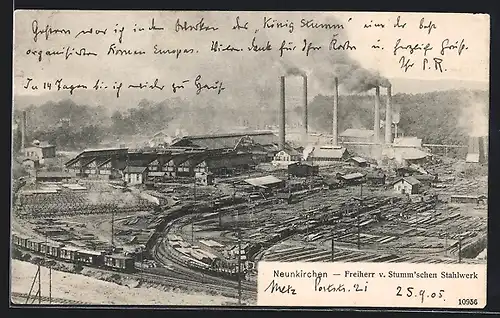 Gestern war ich in den Werken des „König Stumm" einer der best
organisierten Europas. Vielen Dank für Ihre Karte u. herzliche Grüße.
Ihr P.R.
In 14 Tagen bin ich wieder zu Haus.
Neunkirchen — Freiherr v. Stumm'schen Stahlwerk
Metz 25.9.05.
10956